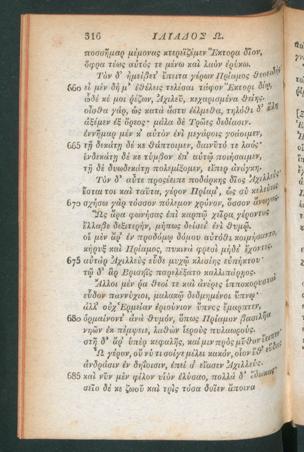 316 ΙΛΙΑΔΟΣ Ω.
ποσσῆμαρ μέμονας κτερεϊζέμεν Ἕκτορα δῖον,
ὄφρα τέως αὐτός τε μένω καὶ λαὸν ἐρύκω.
Τὸν δ' ἠμείβετ' ἔπειτα γέρων Πρίαμος θεοειδής
660 εἰ μὲν δή μ' ἐθέλεις τελέσαι τάφον Ἕκτορι δίῳ,
ὧδέ κέ μοι ῥέζων, Ἀχιλεῦ, κεχαρισμένα θείης.
οἶσθα γὰρ, ὡς κατὰ ἄστυ ἐέλμεθα, τηλόθι δ' ὕλη
ἀξέμεν ἐξ ὄρεος· μάλα δὲ Τρῶες δεδίασιν.
ἐννῆμαρ μέν κ' αὐτὸν ἐνὶ μεγάροις γοάοιμεν,
665 τῇ δεκάτῃ δέ κε θάπτοιμεν, δαινῦτό τε λαός·
ἑνδεκάτῃ δέ κε τύμβον ἐπ' αὐτῷ ποιήσαιμεν,
τῇ δὲ δυωδεκάτῃ πολεμίξομεν, εἴπερ ἀνάγκη.
Τὸν δ' αὖτε προσέειπε ποδάρκης δῖος Ἀχιλλεύς
ἔσται τοι καὶ ταῦτα, γέρον Πρίαμ', ὡς σὺ κελεύεις
670 σχήσω γὰρ τόσσον πόλεμον χρόνον, ὅσσον ἄνωγας.
Ὣς ἄρα φωνήσας ἐπὶ καρπῷ χεῖρα γέροντος
ἔλλαβε δεξιτερὴν, μήπως δείσει' ἐνὶ θυμῷ.
οἱ μὲν ἄρ' ἐν προδόμῳ δόμου αὐτόθι κοιμήσαντο,
κήρυξ καὶ Πρίαμος, πυκινὰ φρεσὶ μήδε' ἔχοντες.
675 αὐτὰρ Ἀχιλλεὺς εὗδε μυχῷ κλισίης εὐπήκτου·
τῷ δ' ἂρ Βρισηῒς παρελέξατο καλλιπάρῃος.
Ἄλλοι μέν ῥα θεοί τε καὶ ἀνέρες ἱπποκορυσταὶ
εὗδον παννύχιοι, μαλακῷ δεδμημένοι ὕπνῳ·
ἀλλ' οὐχ Ἑρμείαν ἐριούνιον ὕπνος ἔμαρπτεν,
680 ὁρμαίνοντ' ἀνὰ θυμὸν, ὅπως Πρίαμον βασιλῆα
νηῶν ἐκ πέμψειε, λαθὼν ἱεροὺς πυλαωρούς.
στῆ δ' ἄρ' ὑπὲρ κεφαλῆς, καί μιν πρὸς μῦθον ἔειπεν
Ὦ γέρον, οὔ νύ τι σοίγε μέλει κακόν, οἷον ἔθ' εὕδεις
ἀνδράσιν ἐν δηΐοισιν, ἐπεί σ' εἴασεν Ἀχιλλεύς.
685 καὶ νῦν μὲν φίλον υἱὸν ἐλύσαο, πολλὰ δ' ἔδωκας·
σεῖο δέ κε ζωοῦ καὶ τρὶς τόσα δοῖεν ἄποινα